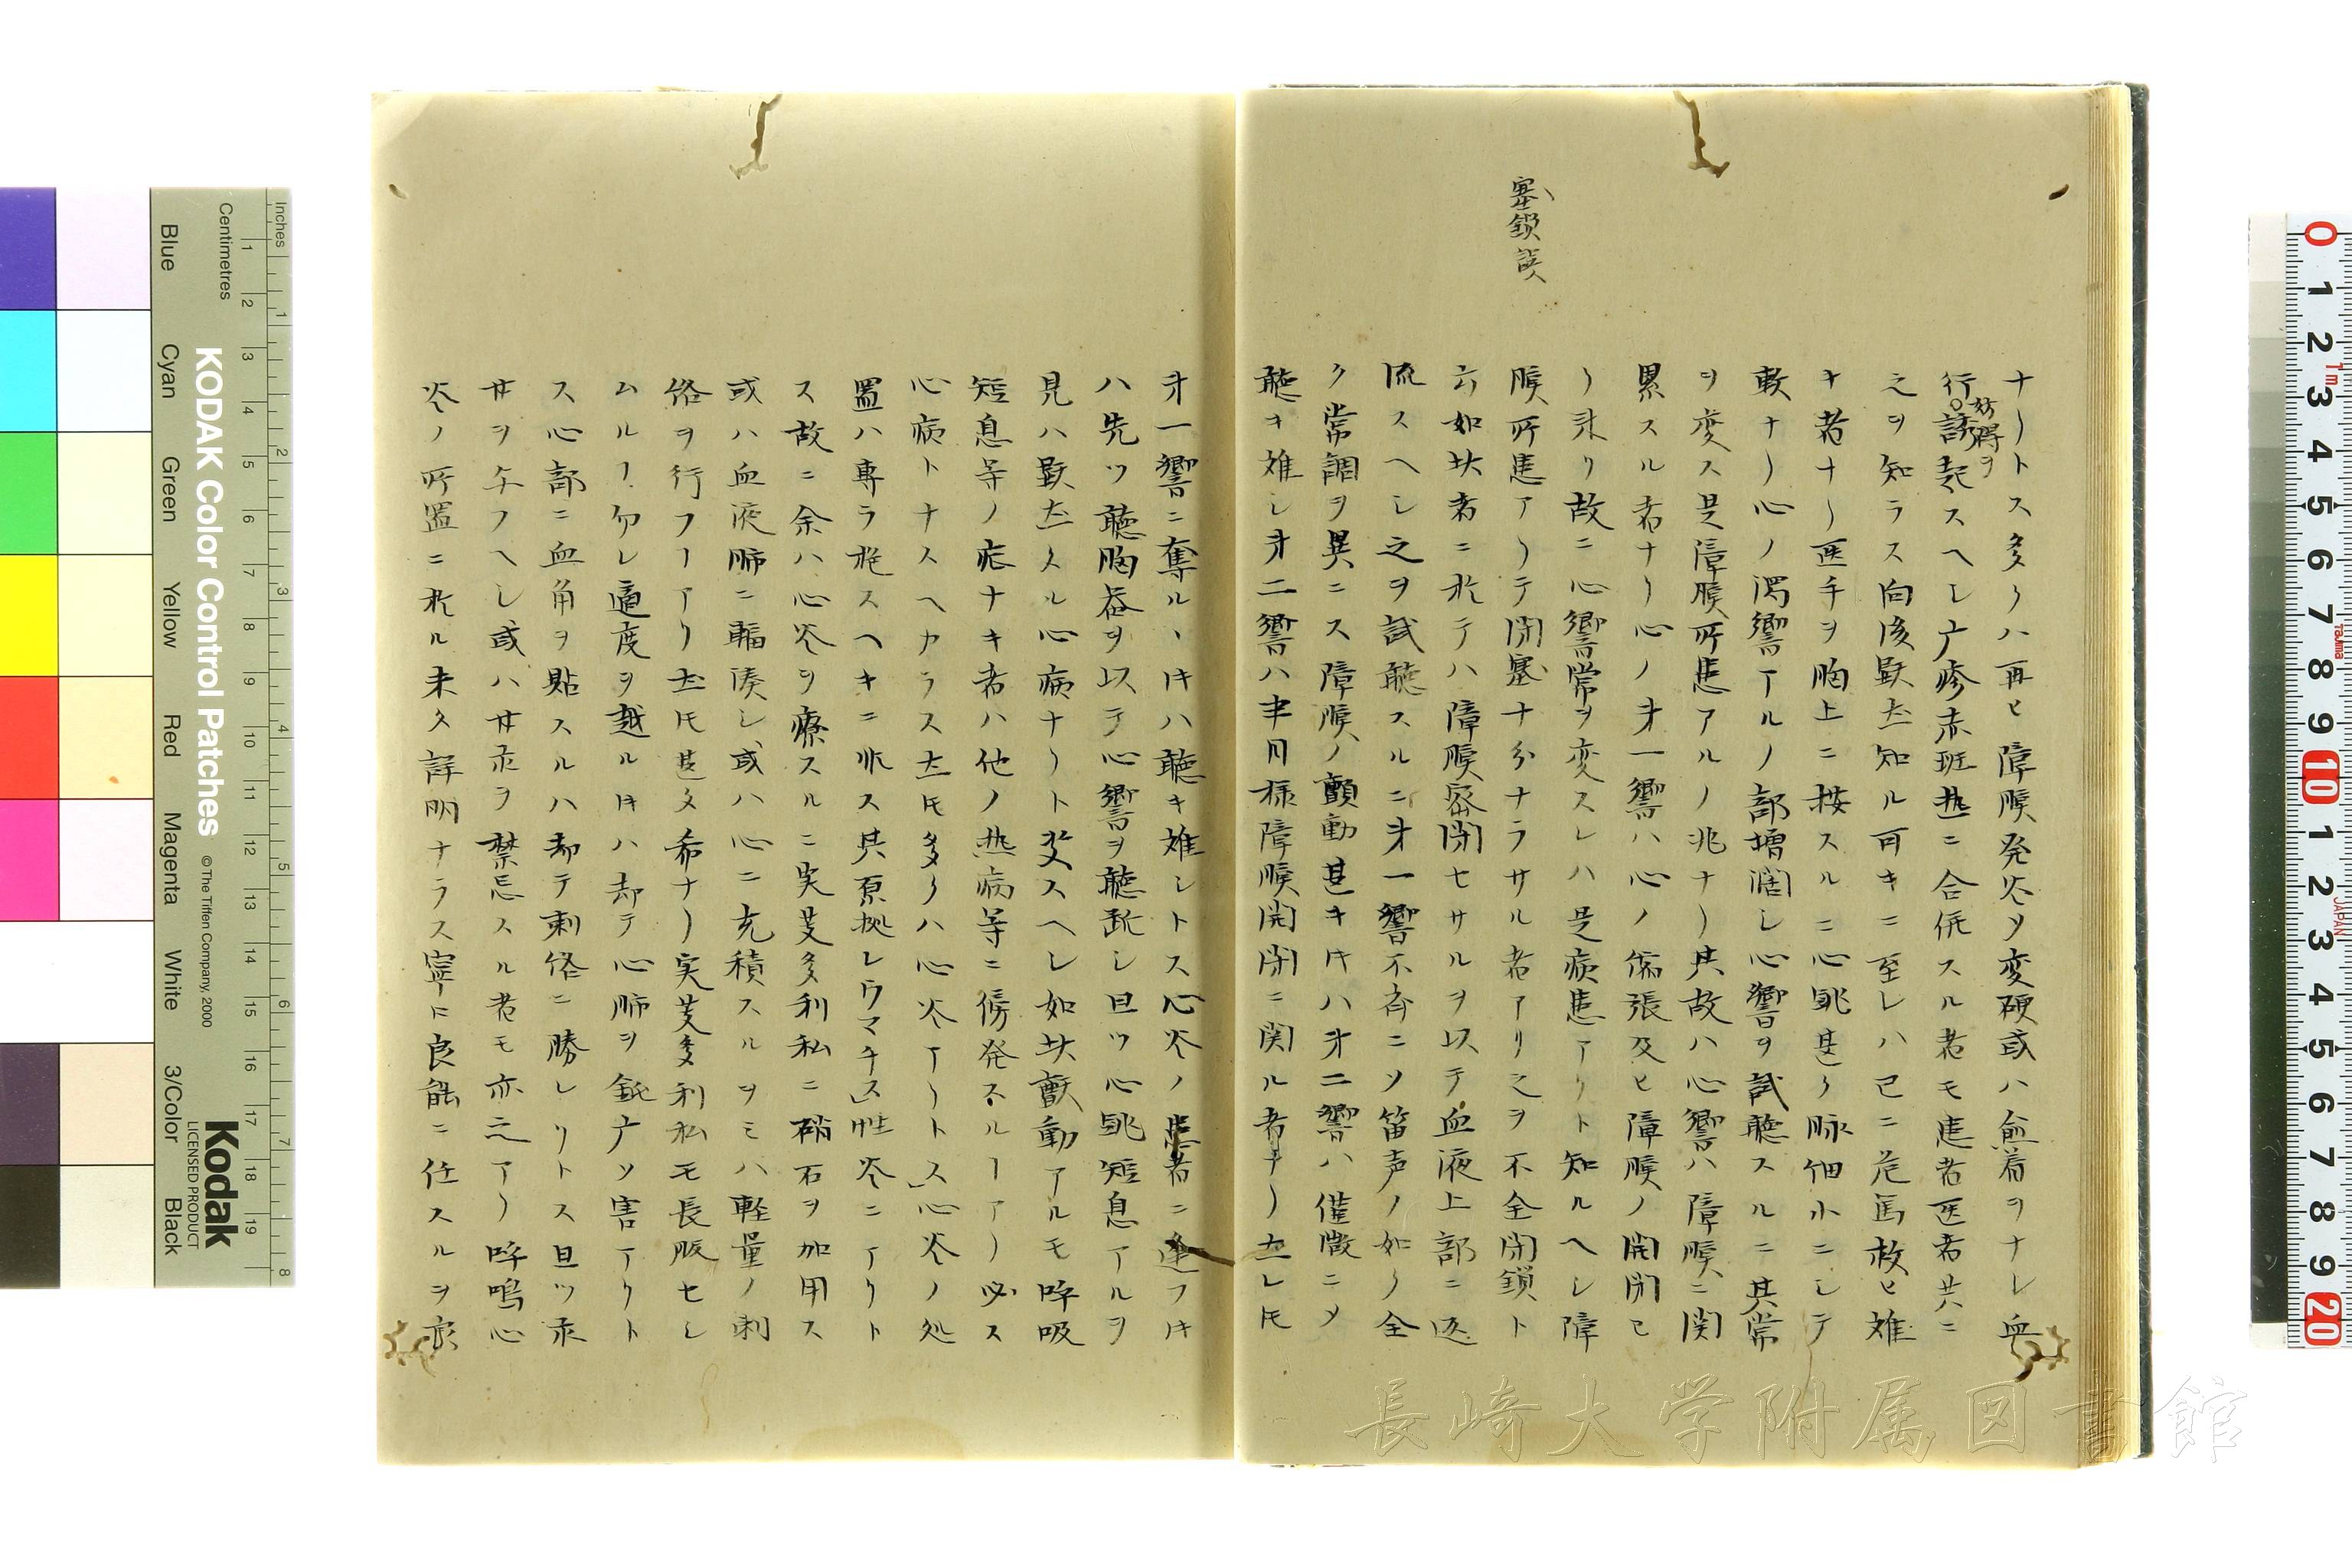 塞鎖誤
ナリトス多クハ再ヒ障膜発炎ソ変硬或ハ癒着ヲナレ血
行誘起スヘレ广疹赤班热ニ合併スル者モ患者医者共ニ
妨得ヲ
之ヲ知ラス向後顕然知ル可キニ至レハ已ニ危篤救ヒ難
キ者ナリ医手ヲ胸上ニ按スルニ心跳甚ク脉細小ニシテ
数ナリ心ノ濁響アルノ部増濶シ心響ヲ試聴スルニ其常
ヲ変ス是障膜所患アルノ兆ナリ其故ハ心響ハ障膜ニ関
累スル者ナリ心ノ才一響ハ心ノ張及ヒ障膜ノ開閉ヨ
リ来リ故ニ心響常ヲ変スレハ是病患アリト知ルヘシ障
膜所患アリテ閉塞十分ナラサル者アリ之ヲ不全閉鎖ト
云如此者ニ於テハ障膜密閉セサルヲ以テ血液上部ニ返
流スヘレ之ヲ試聴スルニ才一響不斉ニソ笛声ノ如ク全
ク常調ヲ異ニス障膜ノ顫動甚キ片ハ才二響ハ僅微ニメ
聴キ難シ才二響ハ半月様障膜開閉ニ関ル者ナリ然レ氏
才一響ニ奪ル丶片ハ聴キ難シトス心炎ノ患者ニ逢フ片
ハ先ツ聴胸器ヲ以テ心響ヲ聴酙シ且ツ心跳短息アルヲ
見ハ顕然タル心病ナリト定スヘレ如此顫動アルモ呼吸
短息等ノ症ナキ者ハ他ノ热病等ニ傍発スルヿアリ必ス
心病トナスヘカラス然氏多クハ心炎アリトス」心炎ノ処
置ハ専ラ施スヘキニ非ス其原拠レウマチス」性炎ニアリト
ス故ニ余ハ心炎ヲ療スルニ実芰多利私ニ硝石ヲ加用ス
或ハ血液肺ニ輻湊シ或ハ心ニ充積スルヲミハ軽量ノ刺
絡ヲ行フヿアリ然氏甚タ希ナリ実芰多利私モ長服セシ
ムルヿ勿レ適度ヲ越ル片ハ却テ心肺ヲ鈍广ソ害アリト
ス心部ニ血角ヲ貼スルハ却テ刺絡ニ勝レリトス且ツ汞
甘ヲ与フヘシ或ハ甘汞ヲ禁忌スル者モ亦之アリ呼嗚心
炎ノ所置ニ於ル未タ詳明ナラス寧ロ良能ニ任スルヲ